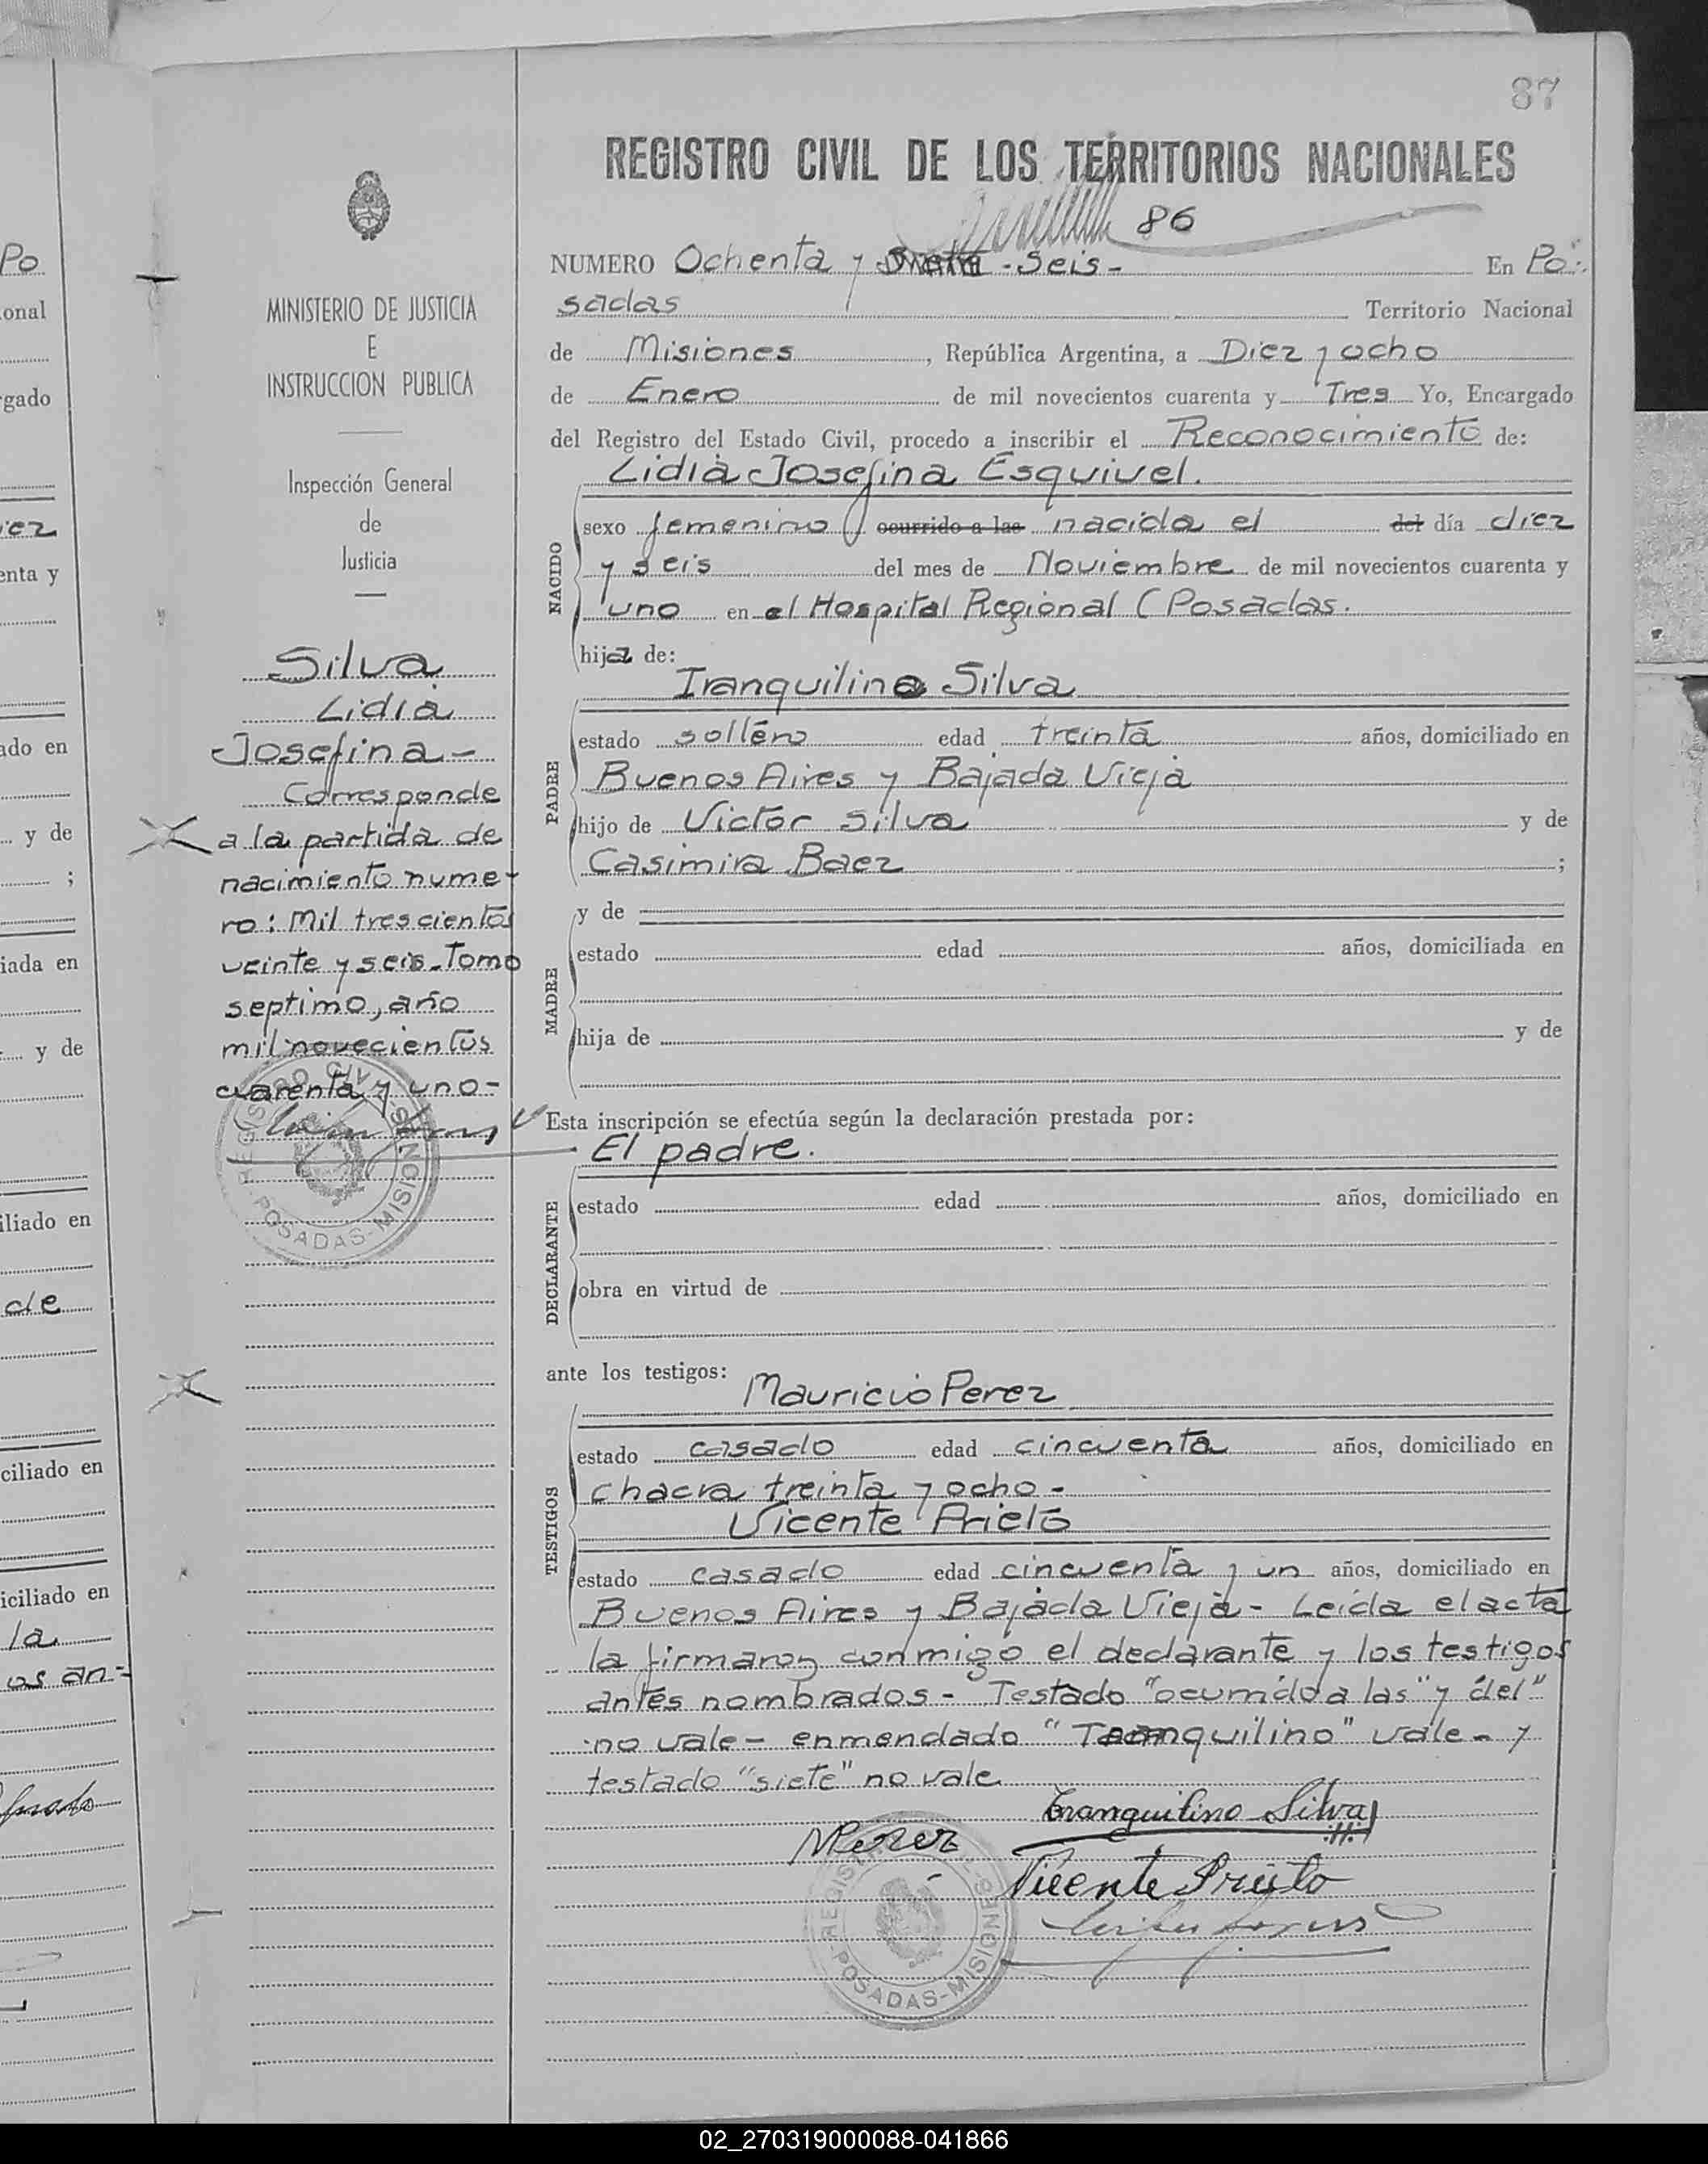 87
REGISTRO CIVIL DE LOS TERRITORIOS NACIONALES
86
NUMERO Ochenta y siete - seis - En Po-
sadas Territorio Nacional
de Misiones, República Argentina, a Diez y ocho
de Enero de mil novecientos cuarenta y Tres Yo, Encargado
del Registro del Estado Civil, procedo a inscribir el Reconocimiento de:
Lidia Josefina Esquivel.
NACIDO
sexo femenino ocurrido a las nacida el del día diez
y seis del mes de Noviembre de mil novecientos cuarenta y
uno en el Hospital Regional (Posadas.
hija de:
Tranquilino Silva
PADRE
estado soltero edad treinta años, domiciliado en
Buenos Aires y Bajada Vieja
hijo de Victor Silva y de
Casimira Baez ;
y de
MADRE
estado edad años, domiciliada en
hija de y de
Esta inscripción se efectúa según la declaración prestada por:
El padre.
DECLARANTE
estado edad años, domiciliado en
obra en virtud de
ante los testigos:
Mauricio Perez
TESTIGOS
estado casado edad cincuenta años, domiciliado en
chacra treinta y ocho -
Vicente Prieto
estado casado edad cincuenta y un años, domiciliado en
Buenos Aires y Bajada Vieja - Leída el acta
la firmaron conmigo el declarante y los testigos
antes nombrados - Testado "ocurrido a las" y "del"
no vale - enmendado "Tranquilino" vale - y
testado "siete" no vale
Tranquilino Silva
MPerez
Vicente Prieto
REGISTRO
POSADAS-MISIONES
MINISTERIO DE JUSTICIA
E
INSTRUCCION PUBLICA
Inspección General
de
Justicia
Silva
Lidia
Josefina -
Corresponde
a la partida de
nacimiento nume-
ro: Mil trescientos
veinte y seis - Tomo
septimo, año
mil novecientos
cuarenta y uno -
REGISTRO CIVIL
POSADAS-MISIONES
Po
onal
rgado
iez
enta y
ado en
y de
;
iada en
y de
iliado en
de
ciliado en
iciliado en
la
os an-
02_270319000088-041866